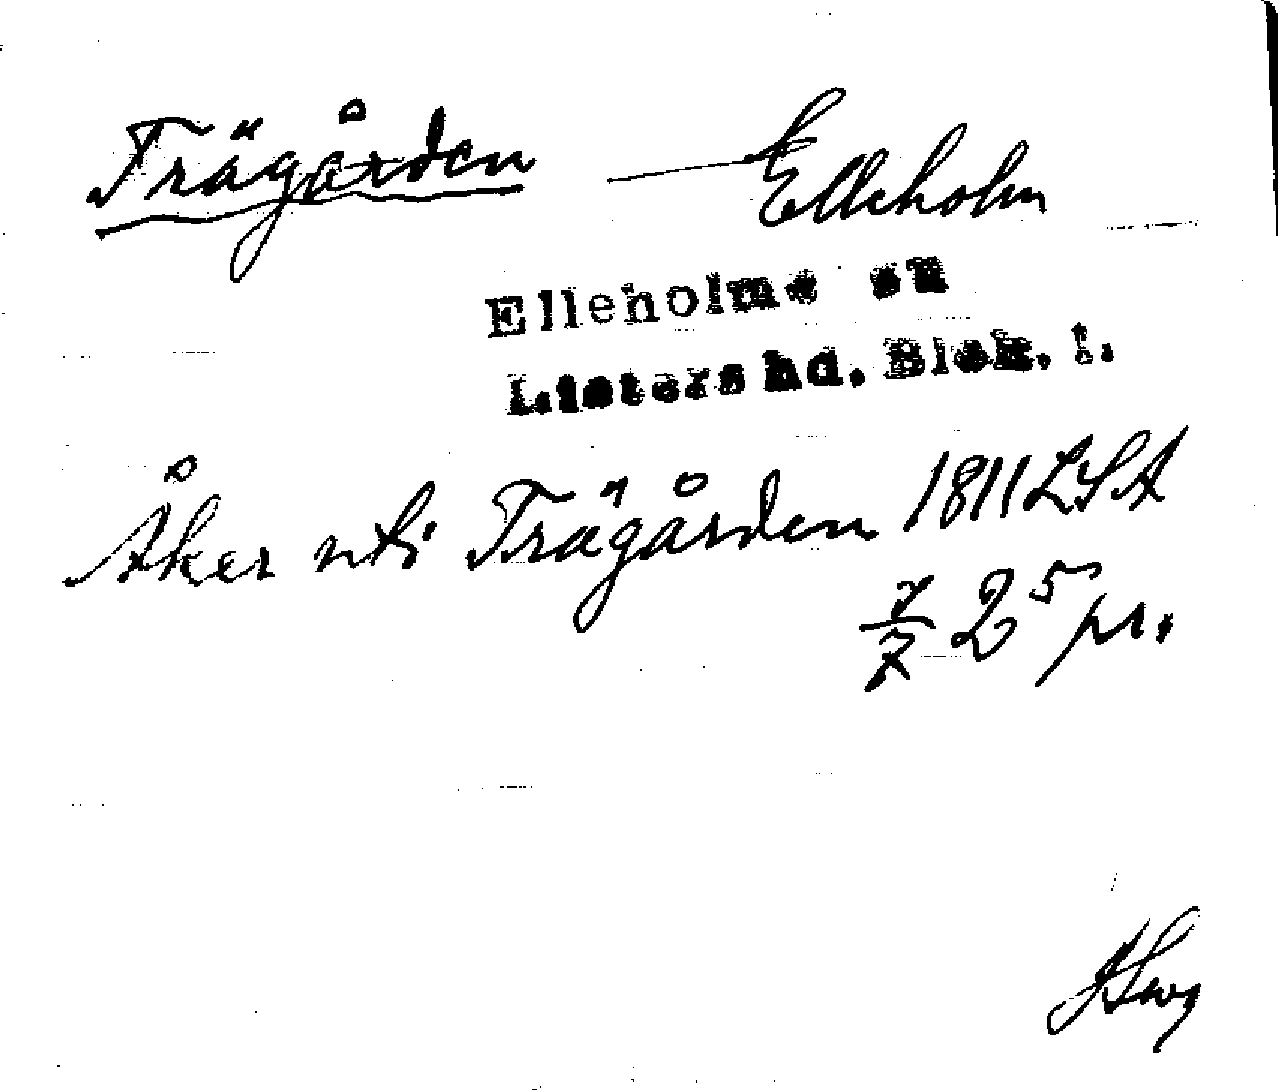 Trägården — Elleholm
Elleholms sn
Listers hd. Blek. l.
Åker uti Trägården 1811 LSA
2⁵ pr.